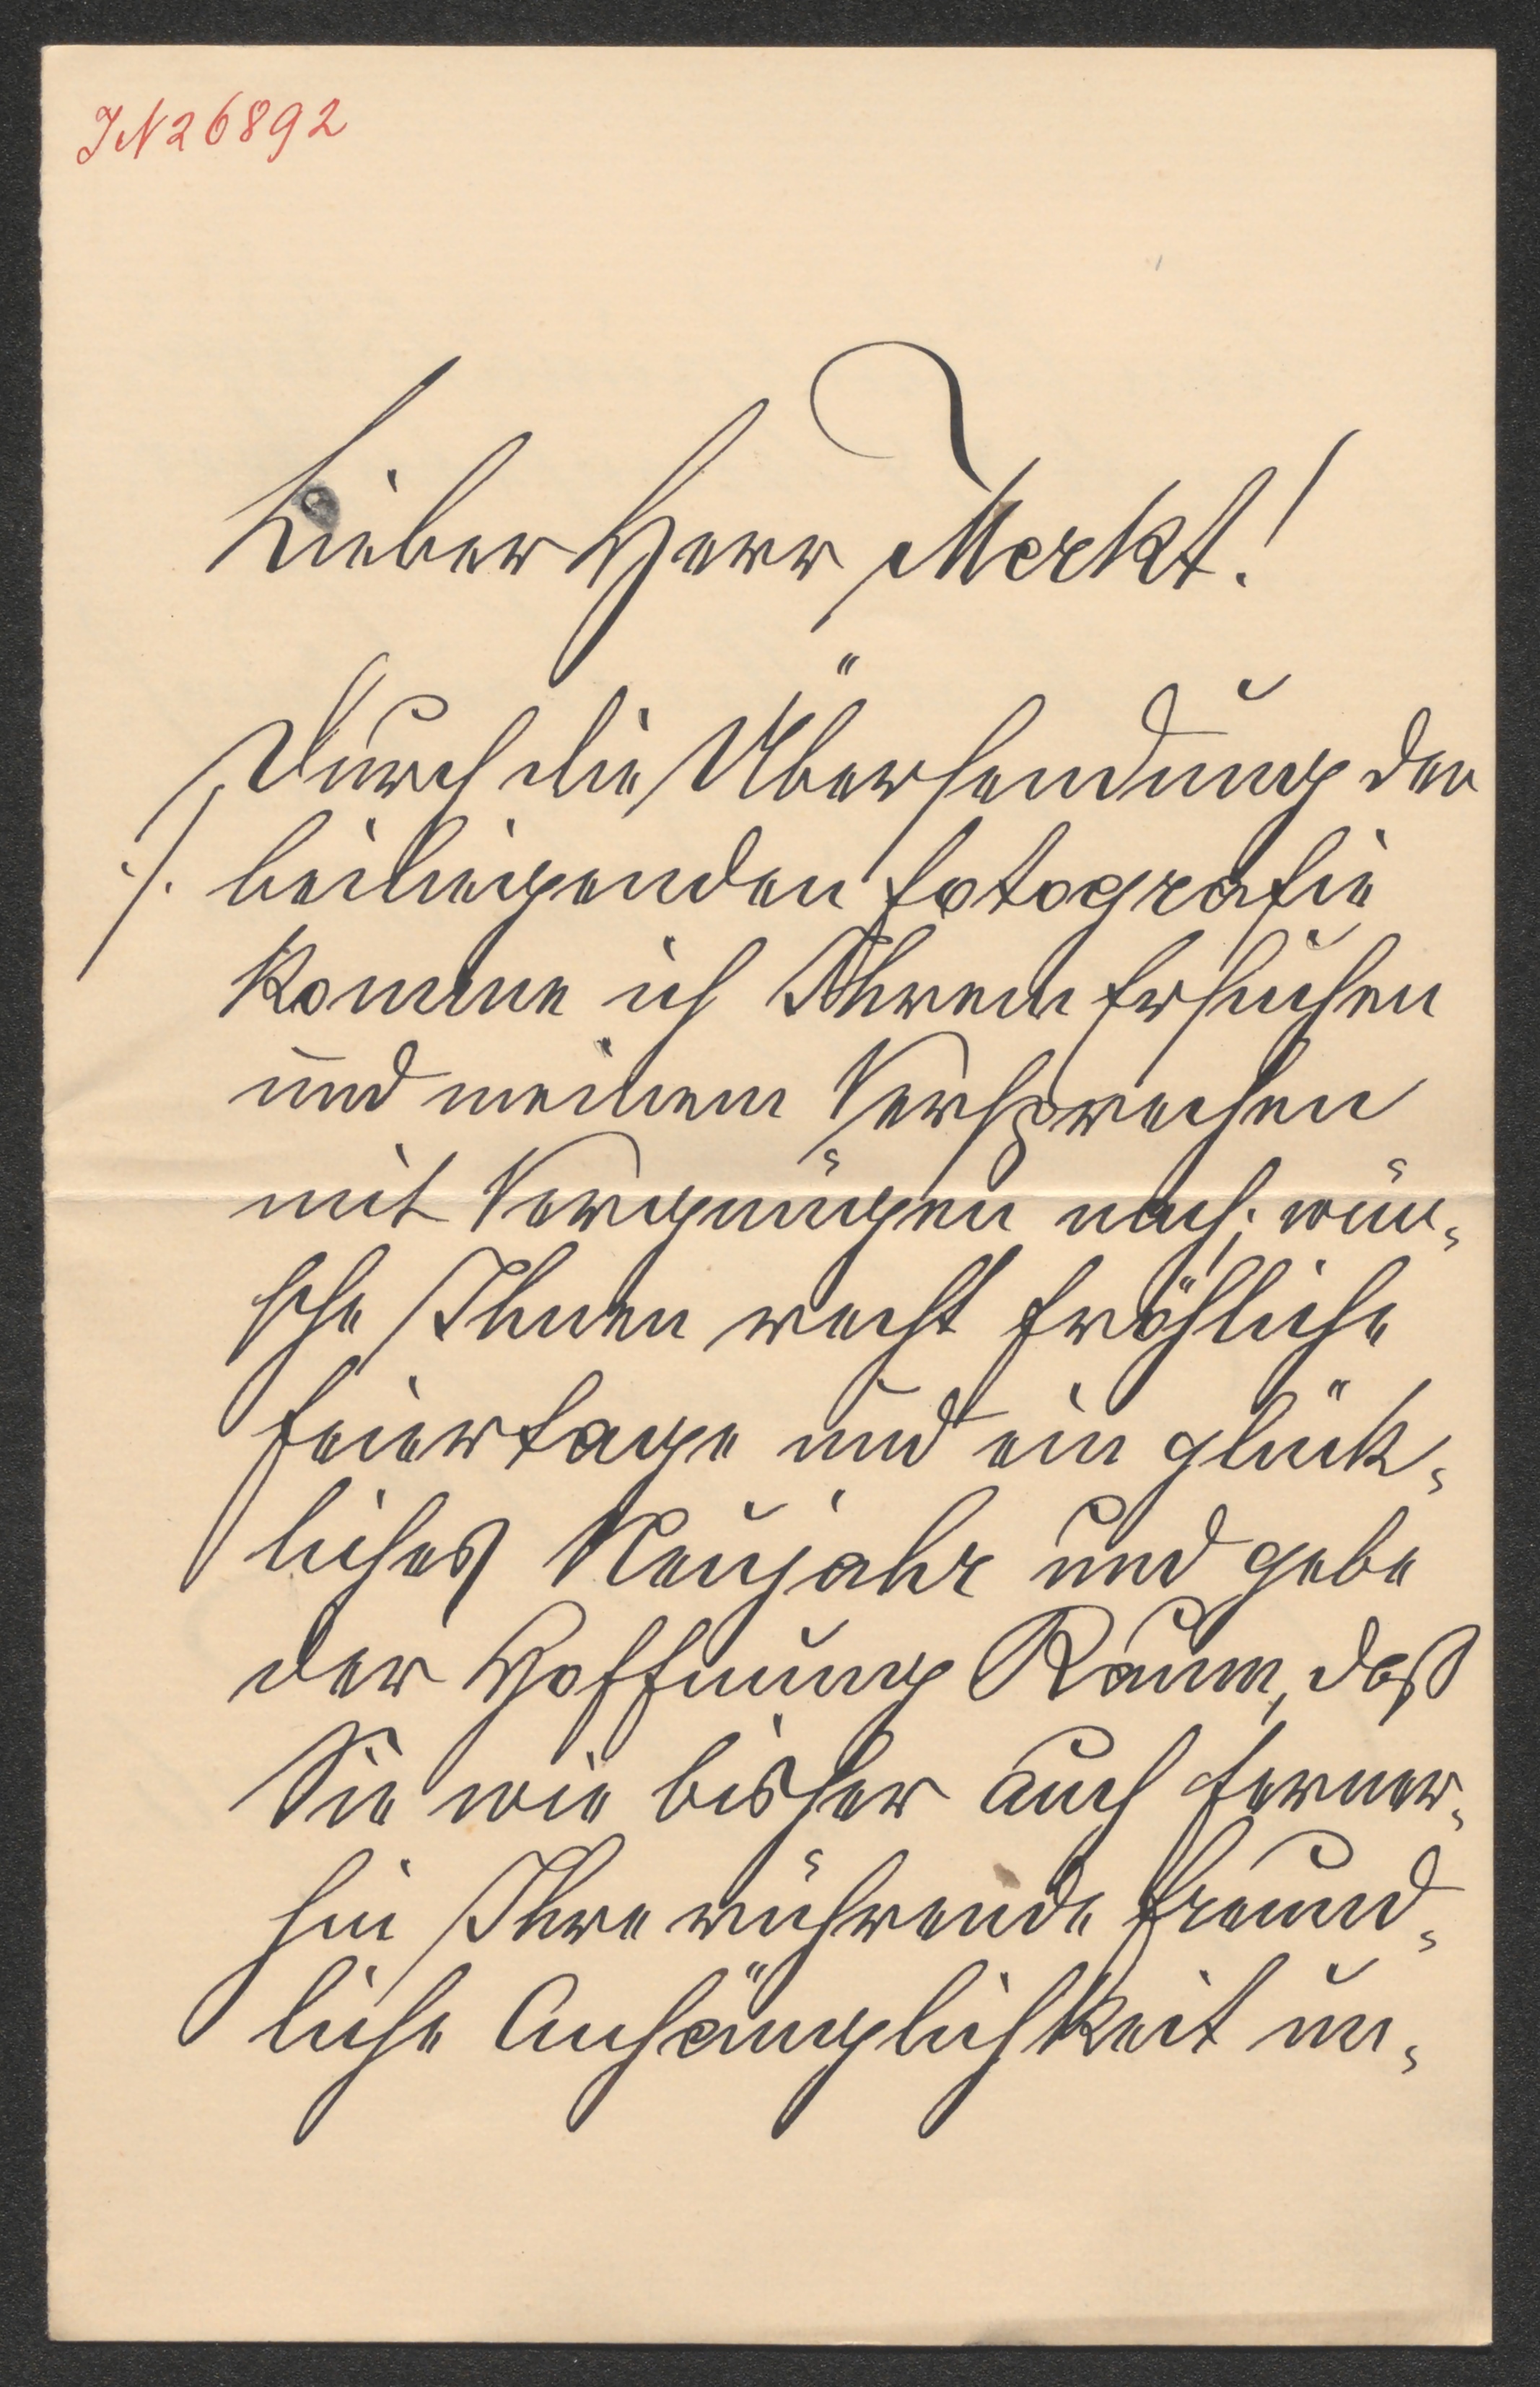 JN26892
Lieber Herr Merkt!
Durch die Übersendung der
./. beiliegenden Fotografie
komme ich Ihrem Ersuchen
und meinem Versprechen
mit Vergnügen nach; wün-
sche Ihnen recht fröhliche
Feiertage und ein glück-
liches Neujahr und gebe
der Hoffnung Raum, daß
Sie wie bisher auch ferner-
hin Ihre rührende freund-
liche Anhänglichkeit un-